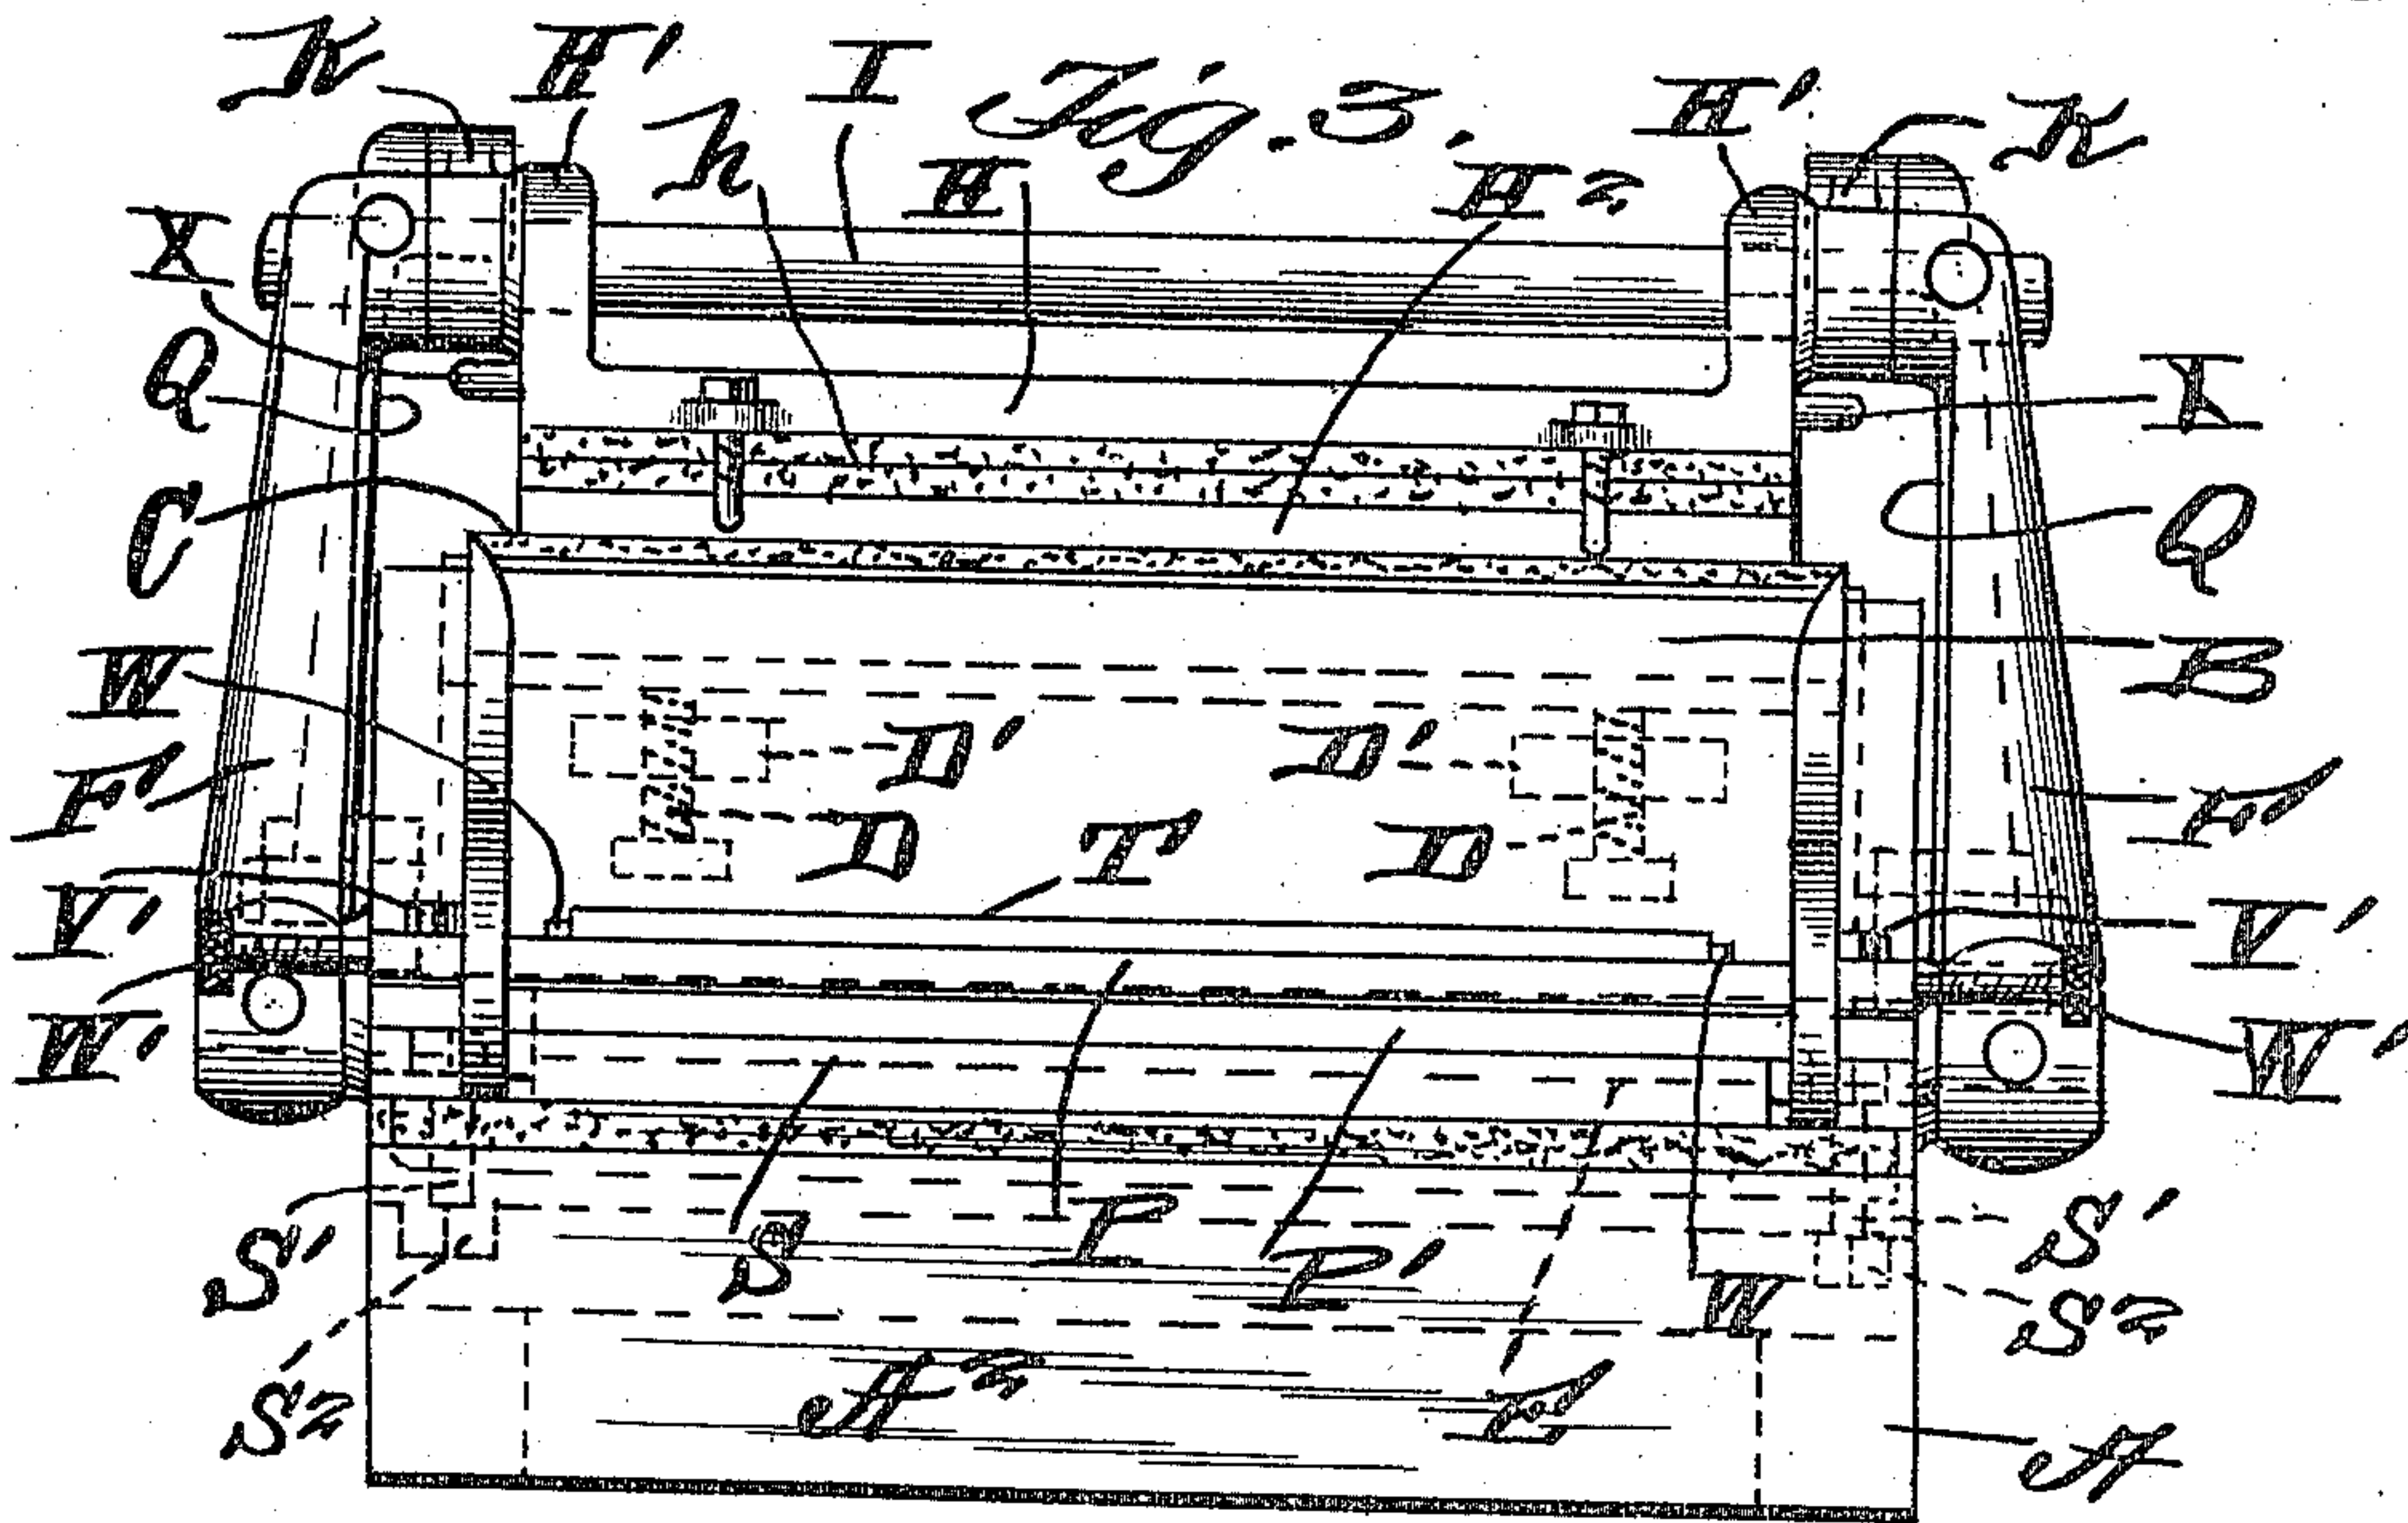 K H' I Fig. 3. H' K
h H H²
X
Q X
C Q
B
W D' D'
F D T D F
V' V'
W' W'
S' S P P' W S'
S²
S² A² L A